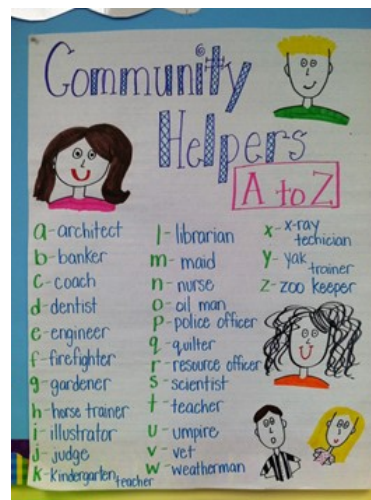 Community
Helpers
A to Z
a-architect
b-banker
c-coach
d-dentist
e-engineer
f-firefighter
g-gardener
h-horse trainer
i-illustrator
j-judge
k-kindergarten
teacher
l-librarian
m-maid
n-nurse
o-oil man
p-police officer
q-quilter
r-resource officer
s-scientist
t-teacher
u-umpire
v-vet
w-weatherman
x-x-ray
techician
y-yak
trainer
z-zoo keeper